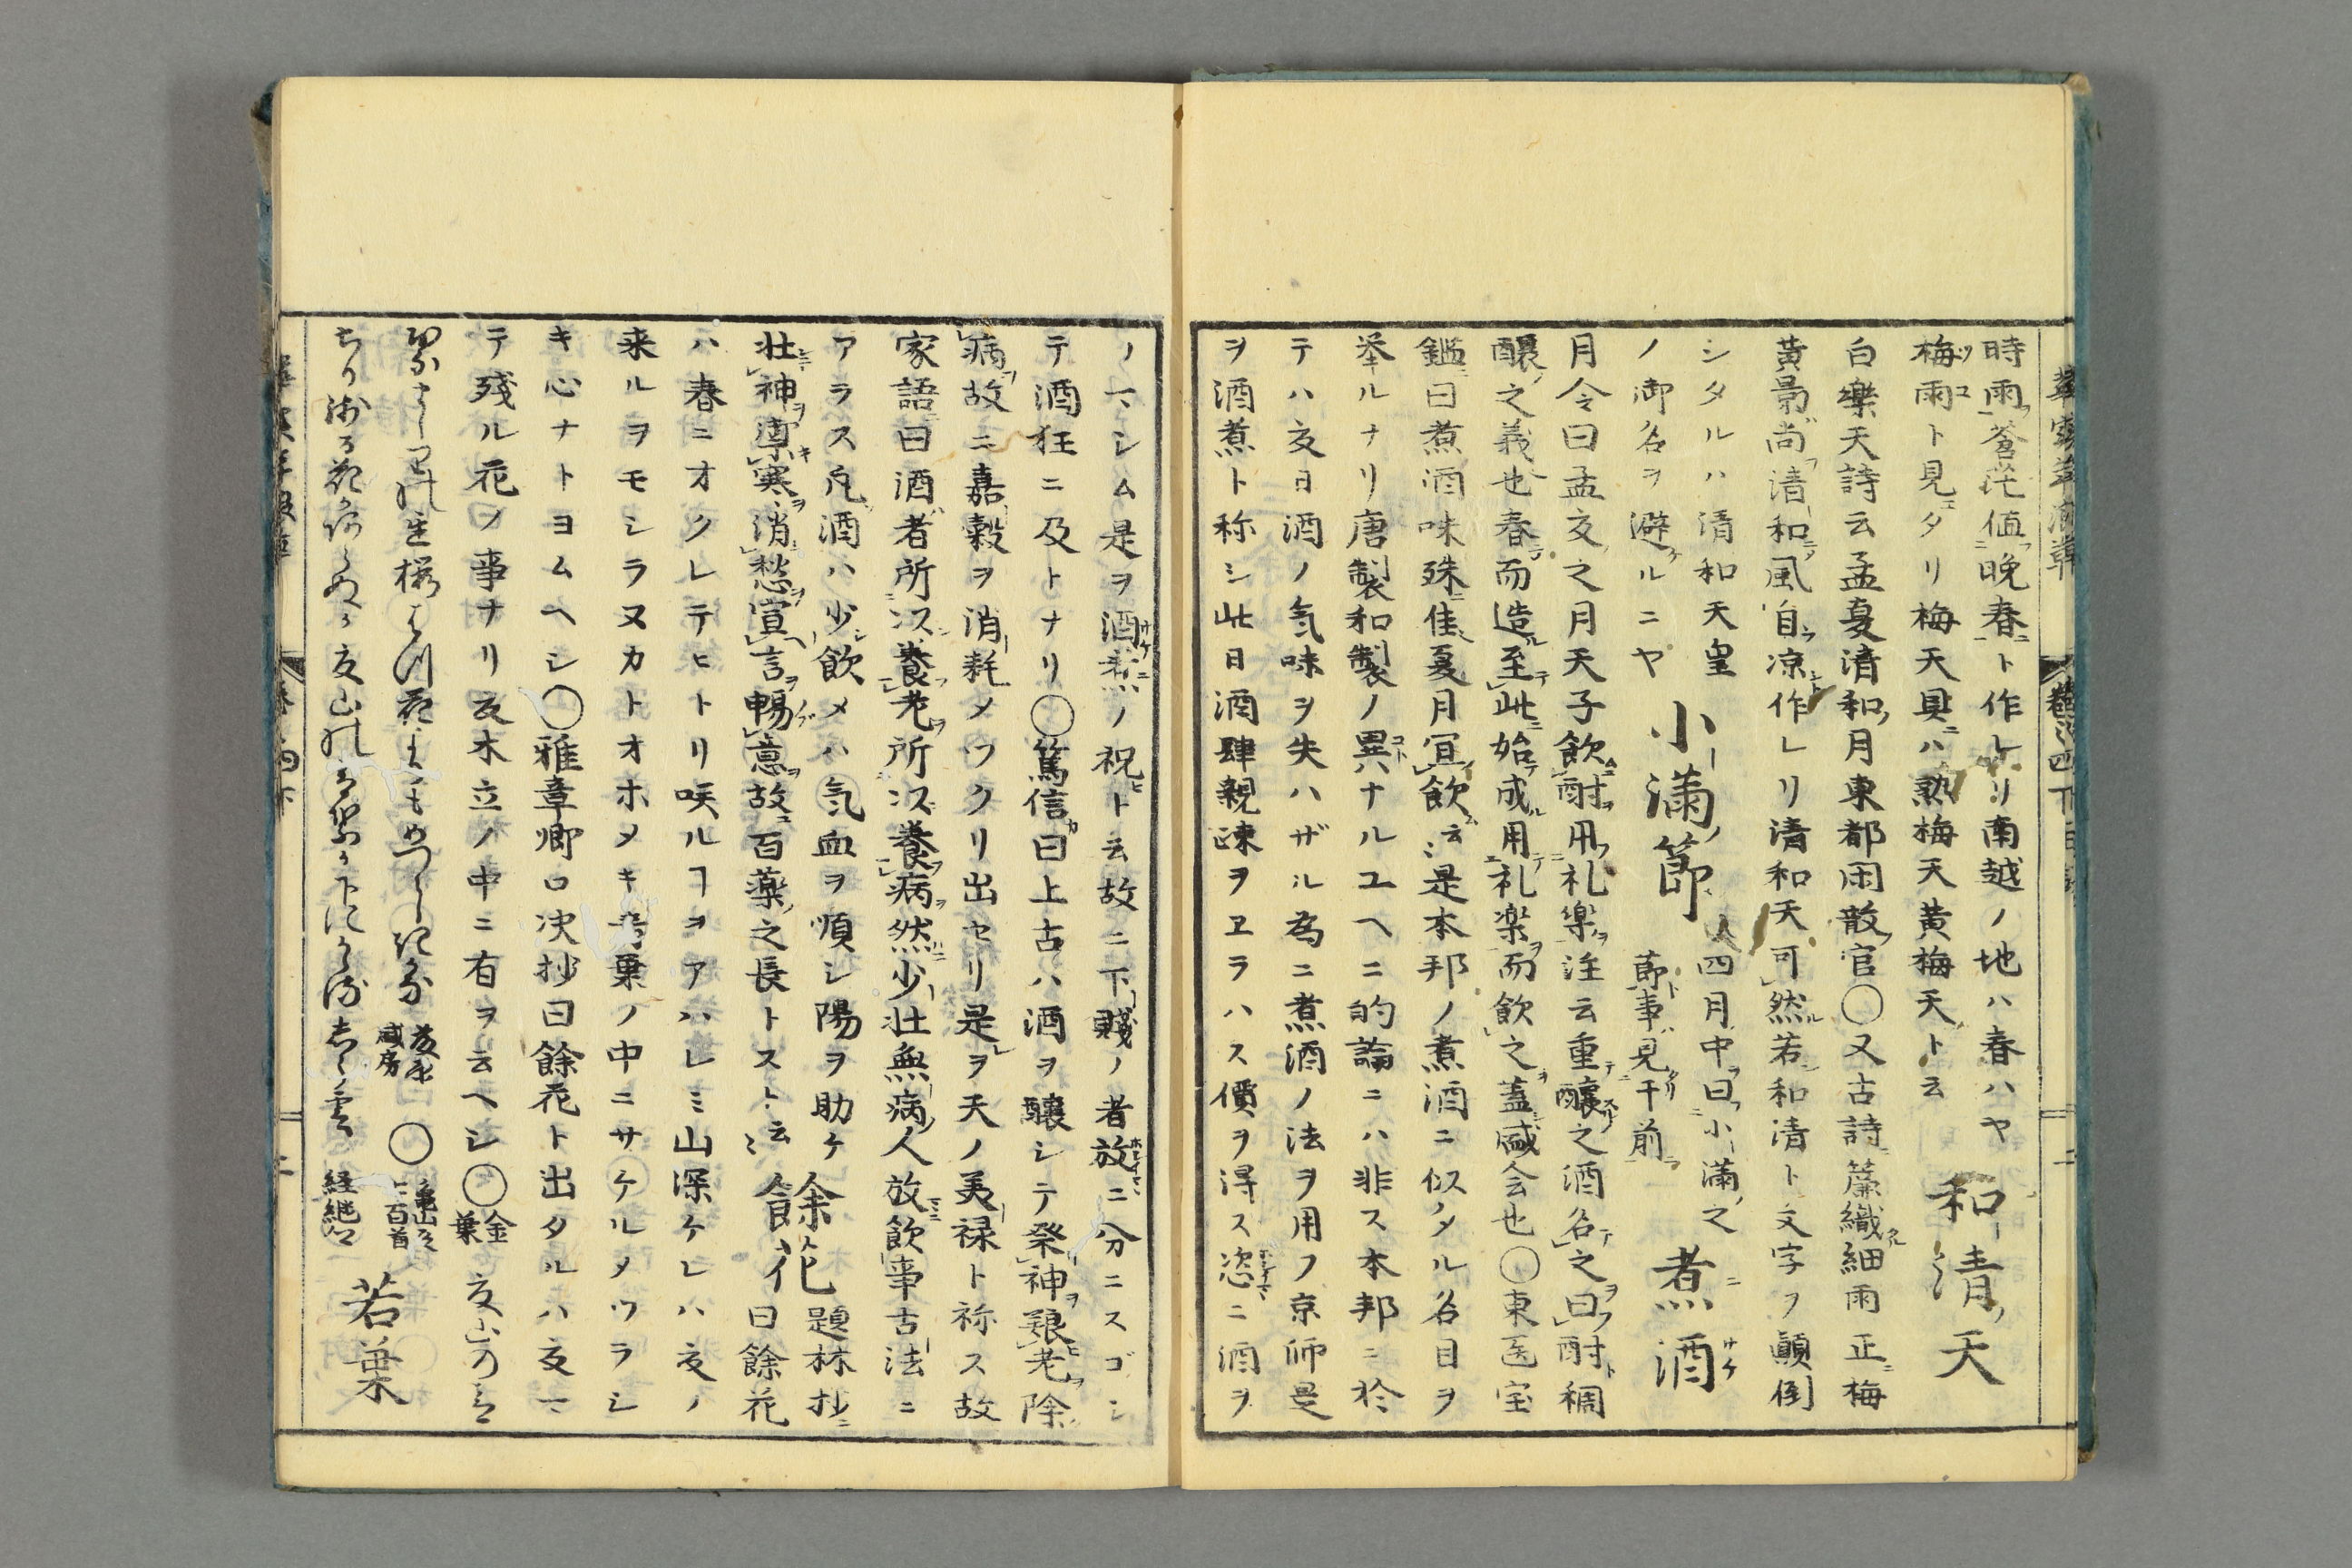 時雨蒼茫値晩春ト作レリ南越ノ地ハ春ハヤ 和清天
梅雨ト見ヱタリ梅天具ニハ熟梅天黄梅天ト云
白樂天詩云孟夏清和月東都閑散官〇又古詩簾織細雨正梅
黄景尚清和風自凉作レリ清和天可然若和清ト文字ヲ顛倒
シタルハ清和天皇
ノ御名ヲ避ケルニヤ
小満節
四月中曰小満之
節事ハ見于前
煮酒
月令曰孟夏之月天子飲酎用礼楽注云重醸之酒名之曰酎稠
醸之義也春而造至此始成用礼楽而飲之蓋盛会也〇東医宝
鑑曰煮酒味殊佳夏月宜飲云〻是本邦ノ煮酒ニ似タル名目ヲ
挙ルナリ唐製和製ノ異ナルユヘニ的論ニハ非ス本邦ニ於
テハ夏日酒ノ気味ヲ失ハザル為ニ煮酒ノ法ヲ用フ京師是
ヲ酒煮ト称シ此日酒肆親疎ヲヱラハス價ヲ得ス恣ニ酒ヲ
ノマシム是ヲ酒煮ノ祝ト云故ニ下賤ノ者放ニ分ニスゴシ
テ酒狂ニ及トナリ〇篤信曰上古ハ酒ヲ醸シテ祭神養老除
病故ニ嘉穀ヲ消耗メツクリ出セリ是ヲ天ノ美禄ト称ス故
家語曰酒者所以養老所以養病然少壮無病人放飲事古法ニ
アラス凡酒ハ少飲メハ気血ヲ順シ陽ヲ助ケ
壮神禦寒消愁宣言暢意故百薬之長トスト云〻
餘花
題林抄ニ
曰餘花
ハ春ニオクレテヒトリ咲ルヿヲアハレミ山深ケレハ夏ノ
来ルヲモシラヌカトオホメキ青葉ノ中ニサケルメツラシ
キ心ナトヨムヘシ〇雅章卿口决抄曰餘花ト出タルハ夏マ
テ殘ル花ノ事ナリ夏木立ノ中ニ有ヲ云ヘシ〇金葉 夏山の
櫻はつ花よりもめつらしきかな 盛房 〇 亀山 百首
ちり 夏山の 經繼 若葉